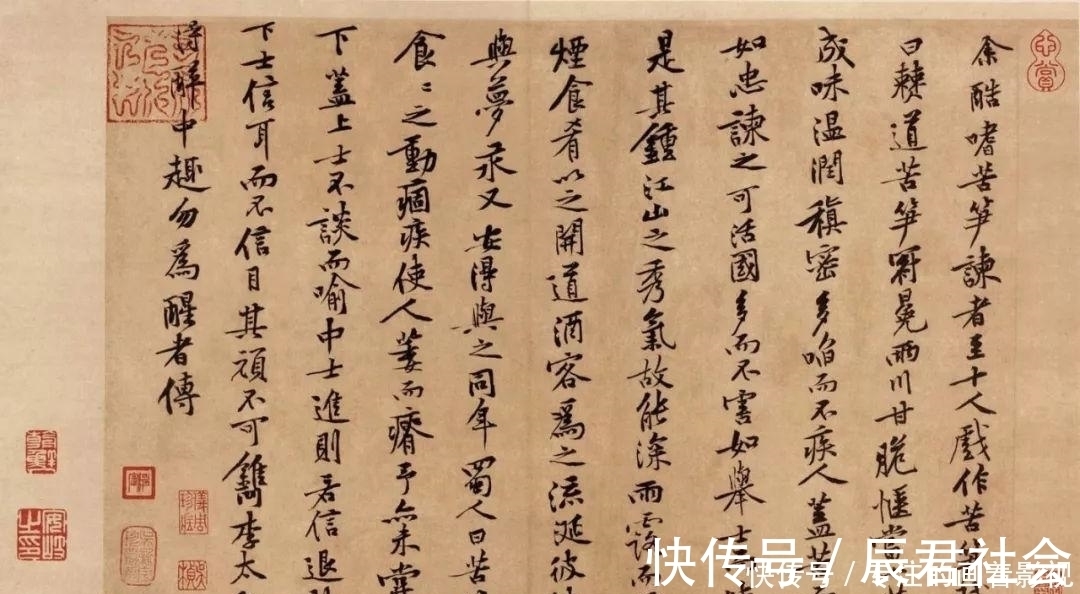 余酷嗜苦笋諫者至十人戲作苦
曰僰道苦笋冠冕兩川甘脆愜當
成味温潤稹密多啗而不疾人蓋苦
如忠諫之可活國多而不害如舉士
是其鍾江山之秀氣故能深雨露而
煙食肴以之開道酒客爲之流涎彼
與夢汞又安得與之同年蜀人曰苦
食〻之動痼疾使人萎而瘠予亦未嘗
下蓋上士不談而喻中士進則若信退
下士信耳而不信目其頑不可鐫李太
得醉中趣勿爲醒者傳
快传号 / 辰君社会
快传号 / 专注的画春影视